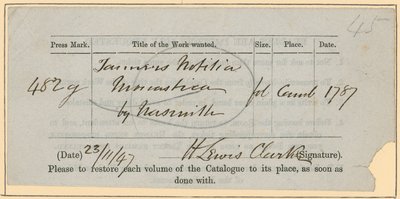 45
Press Mark. Title of the Work wanted. Size. Place. Date.
Tanner's Notitia
482 g Monastica fol Camb 1787
by Nasmith
(Date) 23/11/47 H Lewis Clarke (Signature).
Please to restore each volume of the Catalogue to its place, as soon as
done with.